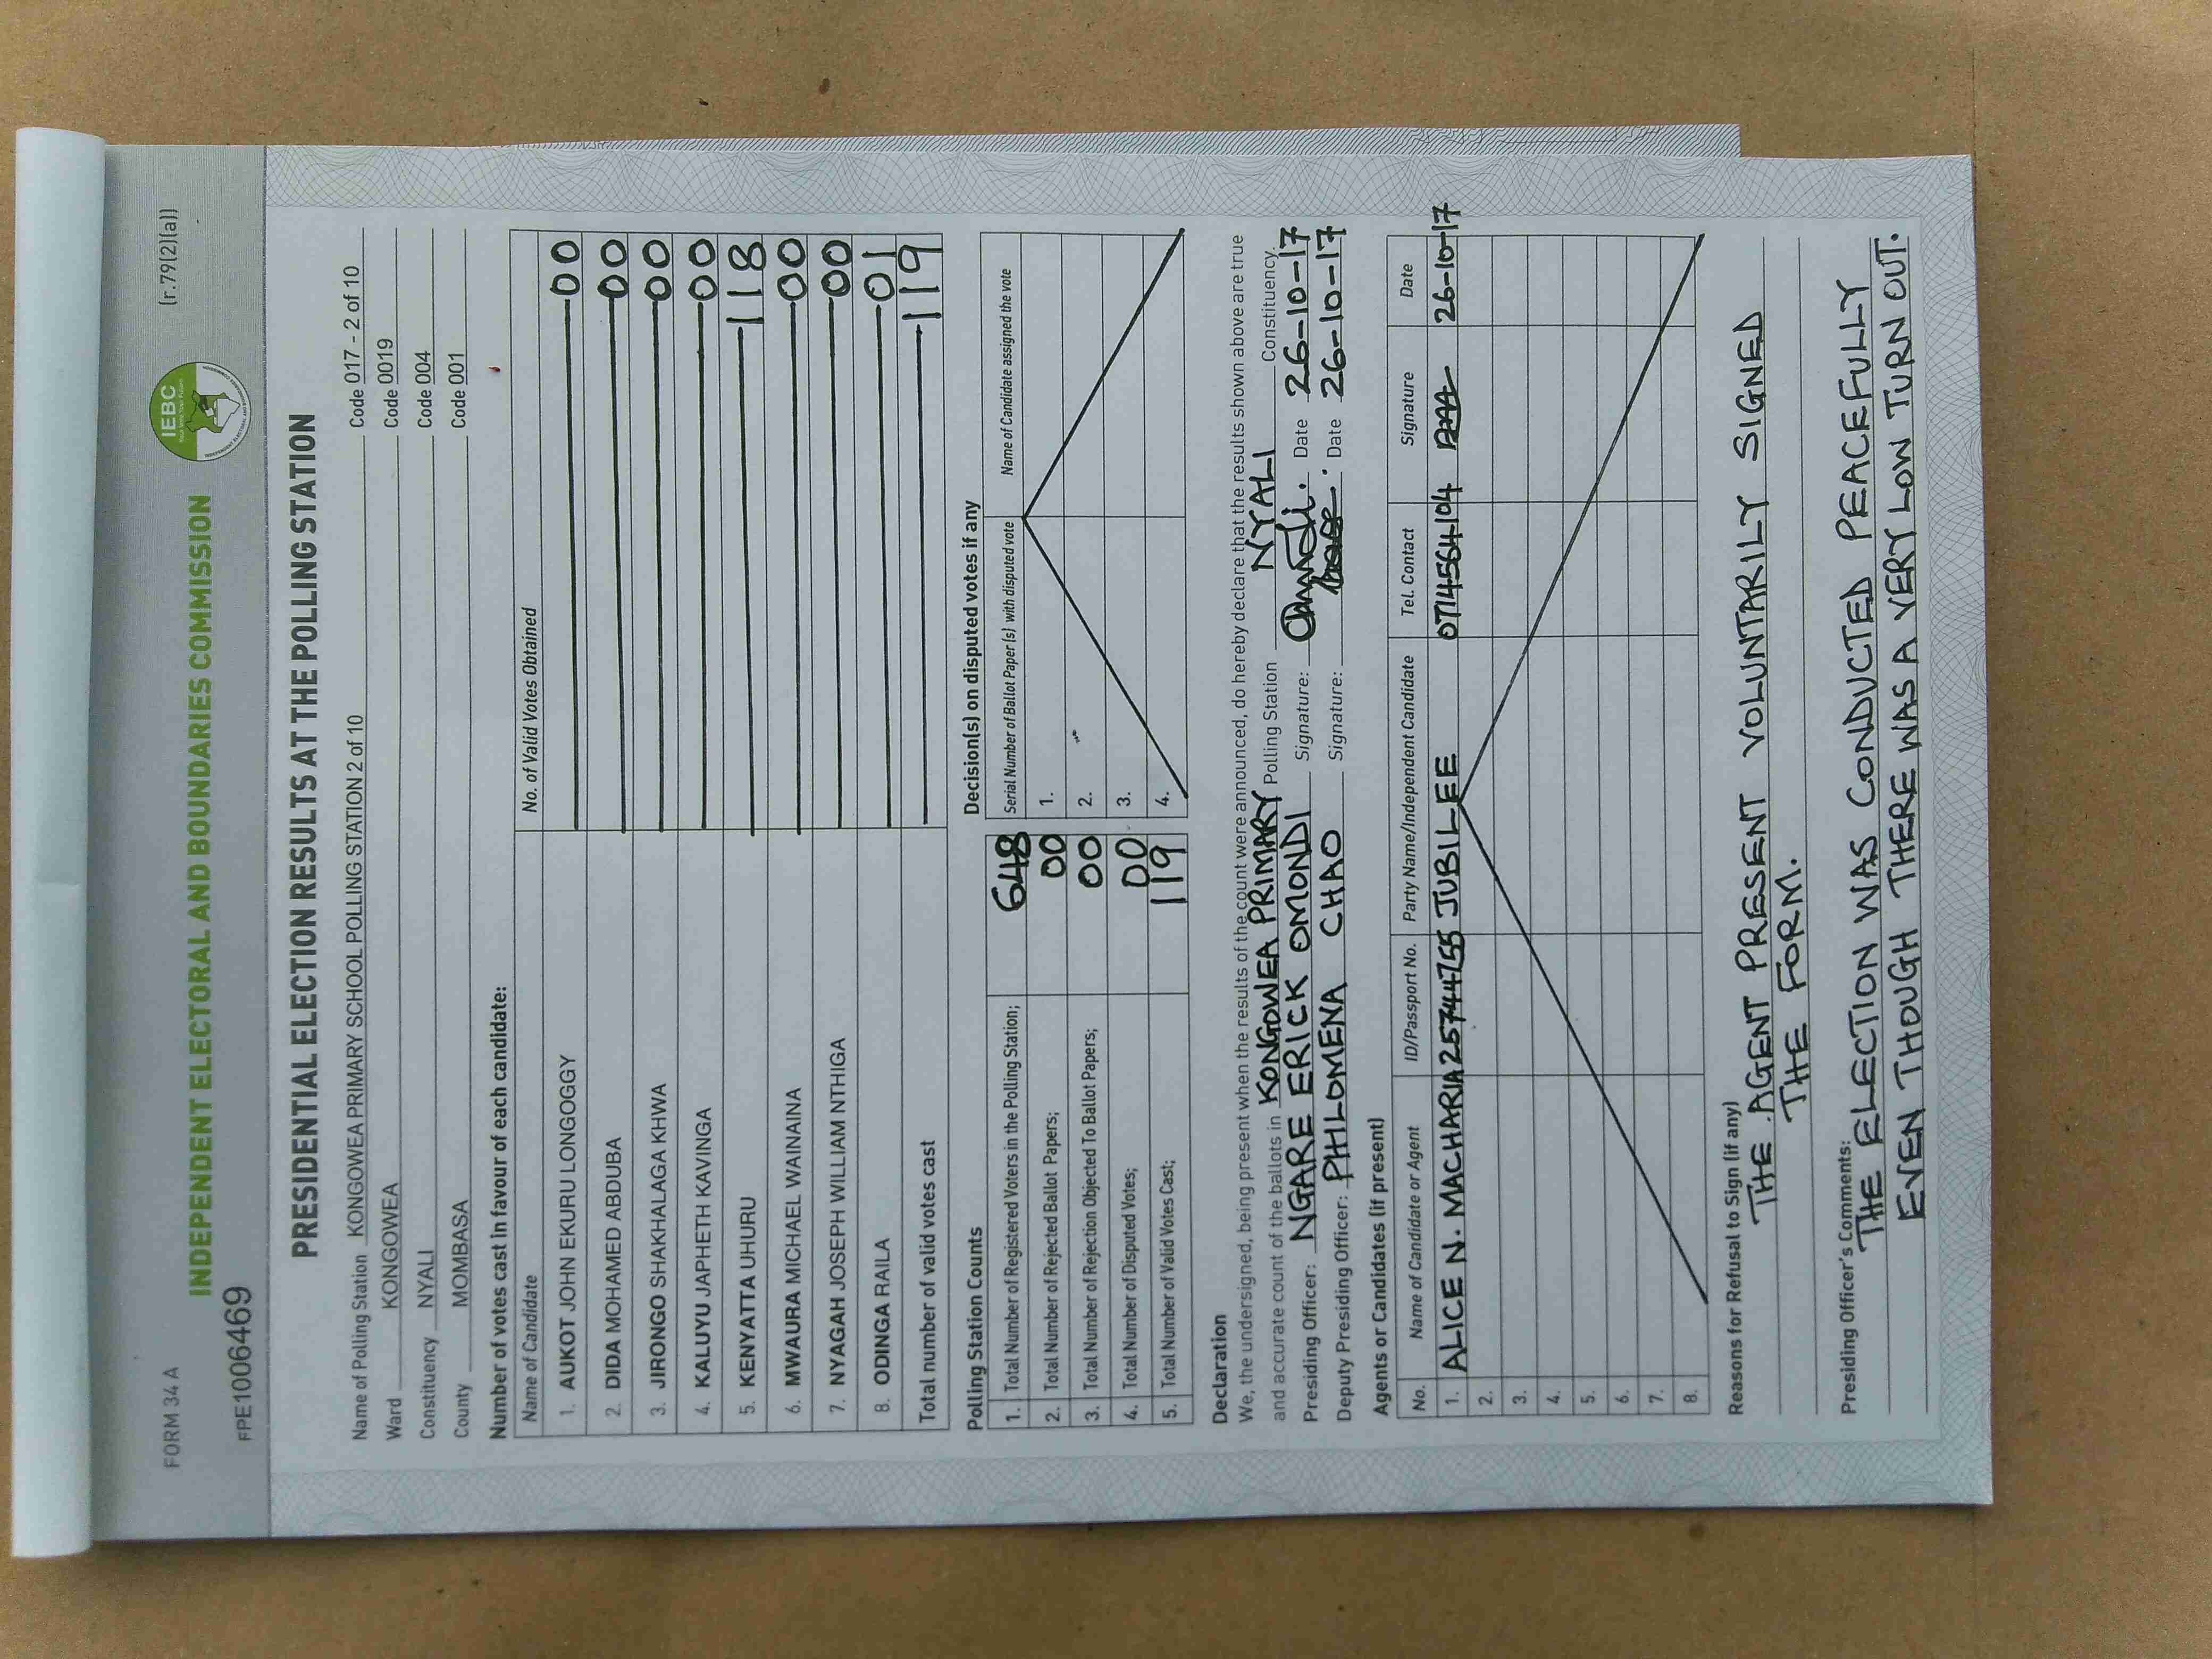 FORM 34 A
(r.79(2)(a))
IEBC
INDEPENDENT ELECTORAL AND BOUNDARIES COMMISSION
FPE1006469
PRESIDENTIAL ELECTION RESULTS AT THE POLLING STATION
Name of Polling Station KONGOWEA PRIMARY SCHOOL POLLING STATION 2 of 10 Code 017 - 2 of 10
Ward KONGOWEA Code 0019
Constituency NYALI Code 004
County MOMBASA Code 001
Number of votes cast in favour of each candidate:
Name of Candidate No. of Valid Votes Obtained
1. AUKOT JOHN EKURU LONGOGGY 00
2. DIDA MOHAMED ABDUBA 00
3. JIRONGO SHAKHALAGA KHWA 00
4. KALUYU JAPHETH KAVINGA 00
5. KENYATTA UHURU 118
6. MWAURA MICHAEL WAINAINA 00
7. NYAGAH JOSEPH WILLIAM NTHIGA 00
8. ODINGA RAILA 01
Total number of valid votes cast 119
Polling Station Counts
1. Total Number of Registered Voters in the Polling Station; 648
2. Total Number of Rejected Ballot Papers; 00
3. Total Number of Rejection Objected To Ballot Papers; 00
4. Total Number of Disputed Votes; 00
5. Total Number of Valid Votes Cast; 119
Decision(s) on disputed votes if any
Serial Number of Ballot Paper(s) with disputed vote Name of Candidate assigned the vote
1.
2.
3.
4.
Declaration
We, the undersigned, being present when the results of the count were announced, do hereby declare that the results shown above are true
and accurate count of the ballots in KONGOWEA PRIMARY Polling Station NYALI Constituency.
Presiding Officer: NGARE ERICK OMONDI Signature: Date 26-10-17
Deputy Presiding Officer: PHILOMENA CHAO Signature: Date 26-10-17
Agents or Candidates (if present)
No. Name of Candidate or Agent ID/Passport No. Party Name/Independent Candidate Tel. Contact Signature Date
1. ALICE N. MACHARIA 25744755 JUBILEE 0714564104 26-10-17
2.
3.
4.
5.
6.
7.
8.
Reasons for Refusal to Sign (if any)
THE AGENT PRESENT VOLUNTARILY SIGNED
THE FORM.
Presiding Officer's Comments:
THE ELECTION WAS CONDUCTED PEACEFULLY
EVEN THOUGH THERE WAS A VERY LOW TURN OUT.